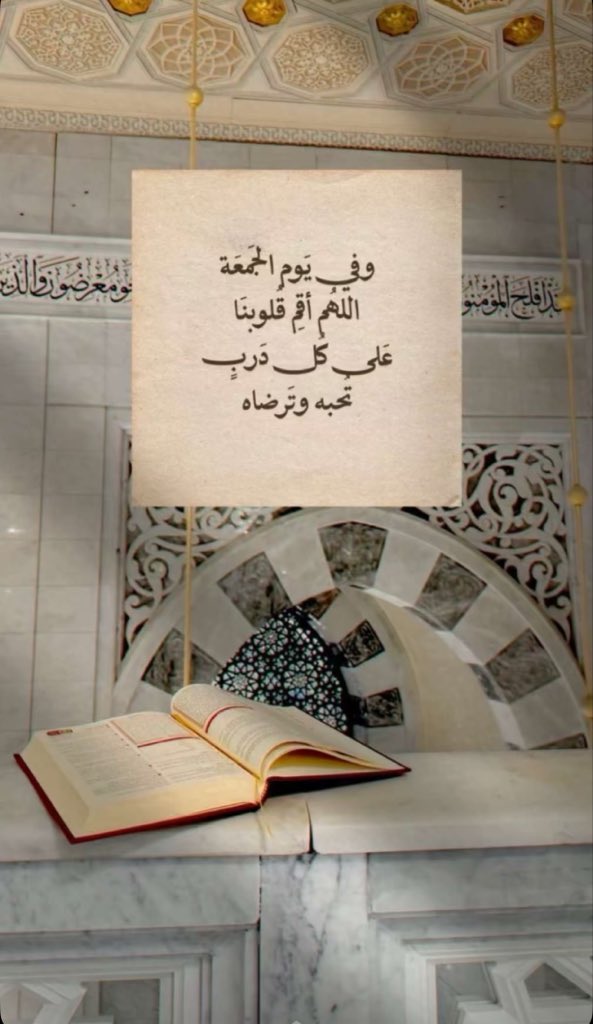 وفي يَوم الجَمعَة
اللهُم أقِم قُلوبنَا
عَلى كُل دَربٍ
تُحبه وتَرضاه
قد أفلح المؤمنو
معرضون والذين